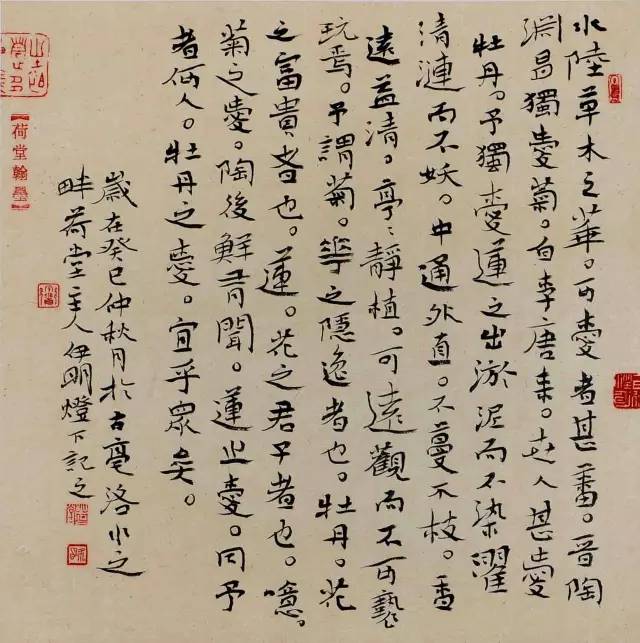 水陸草木之華。可愛者甚蕃。晉陶
淵明獨愛菊。自李唐來。世人甚愛
牡丹。予獨愛蓮之出淤泥而不染濯
清漣而不妖。中通外直。不蔓不枝。香
遠益清。亭〻靜植。可遠觀而不可褻
玩焉。予謂菊。華之隱逸者也。牡丹。花
之富貴者也。蓮。花之君子者也。噫。
菊之愛。陶後鮮有聞。蓮之愛。同予
者何人。牡丹之愛。宜乎眾矣。
歲在癸巳仲秋月於古亳洛水之
畔荷堂主人伊明燈下記之
【荷堂翰墨】